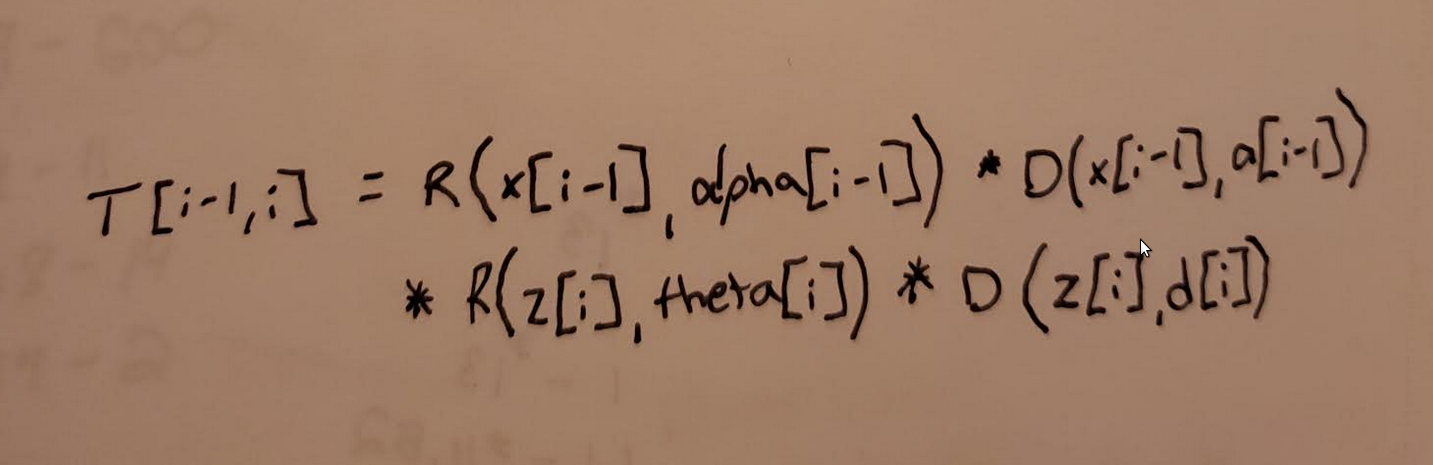 T[i-1,i] = R(x[i-1], alpha[i-1]) * D(x[i-1], a[i-1])
* R(z[i], theta[i]) * D(z[i], d[i])